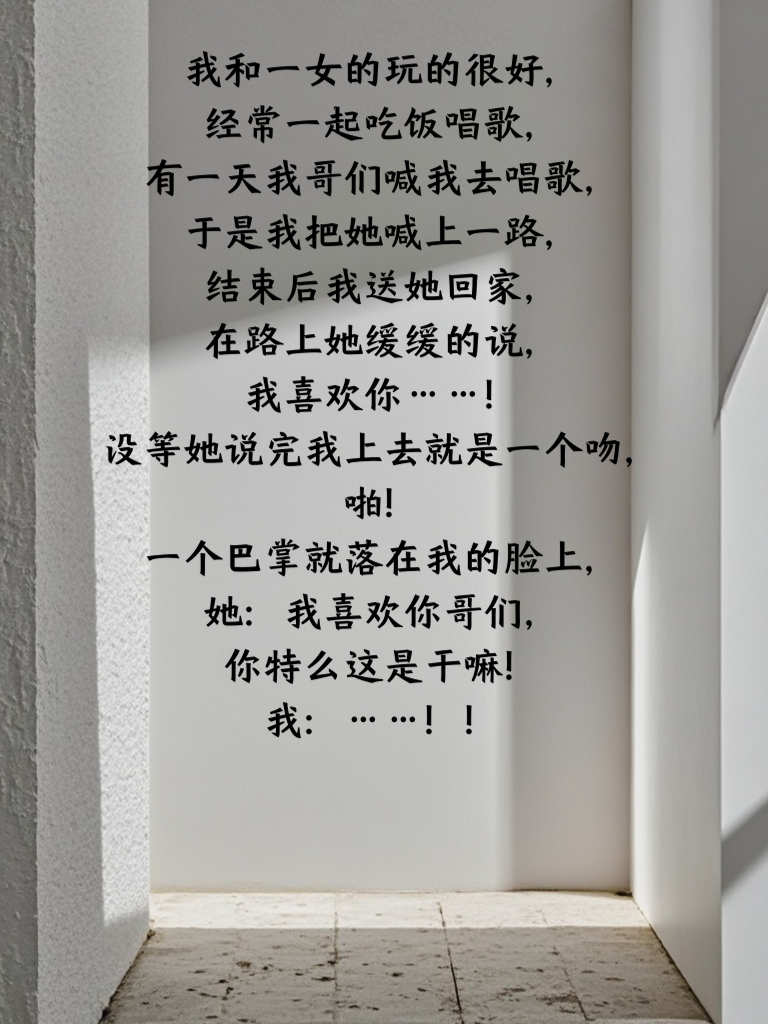 我和一女的玩的很好,
经常一起吃饭唱歌,
有一天我哥们喊我去唱歌,
于是我把她喊上一路,
结束后我送她回家,
在路上她缓缓的说,
我喜欢你……!
没等她说完我上去就是一个吻,
啪!
一个巴掌就落在我的脸上,
她: 我喜欢你哥们,
你特么这是干嘛!
我: ……! !